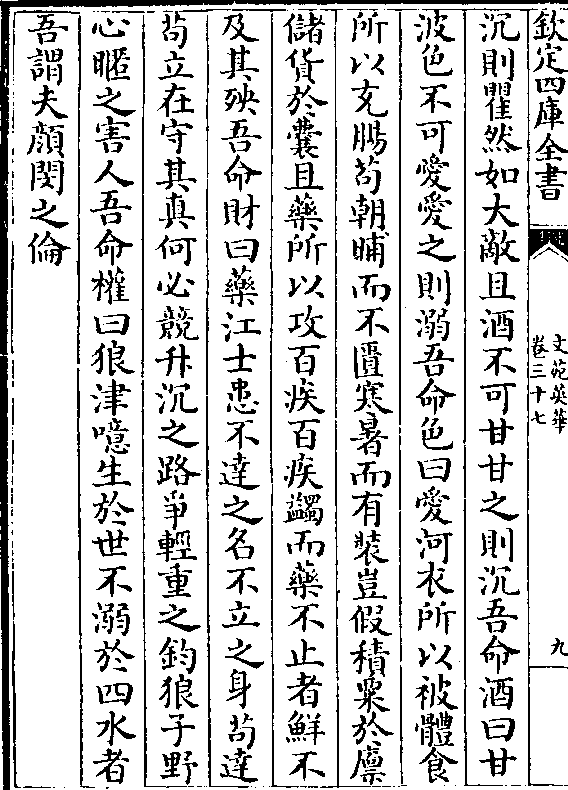 欽定四庫全書
文苑英華
卷三十七
九
沉則瞿然如大敵且酒不可甘甘之則沉吾命酒曰甘
波色不可愛愛之則溺吾命色曰愛河衣所以被體食
所以充腸苟朝晡而不匱寒暑而有裝豈假積粟於廩
儲貨於囊且藥所以攻百疾百疾蠲而藥不止者鮮不
及其殃吾命財曰藥江士患不達之名不立之身苟達
苟立在守其真何必競升沉之路爭輕重之鈞狼子野
心暱之害人吾命權曰狼津噫生於世不溺於四水者
吾謂夫顔閔之倫